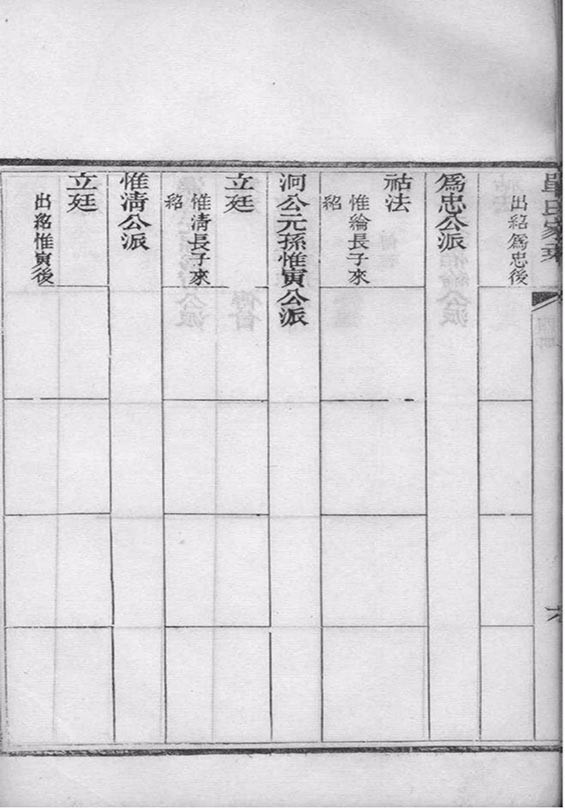 氏家乘
六
出紹爲忠後
爲忠公派
祜法
惟綸長子來
紹
泂公元孫惟寅公派
立廷
惟清長子來
紹
惟清公派
立廷
出紹惟寅後